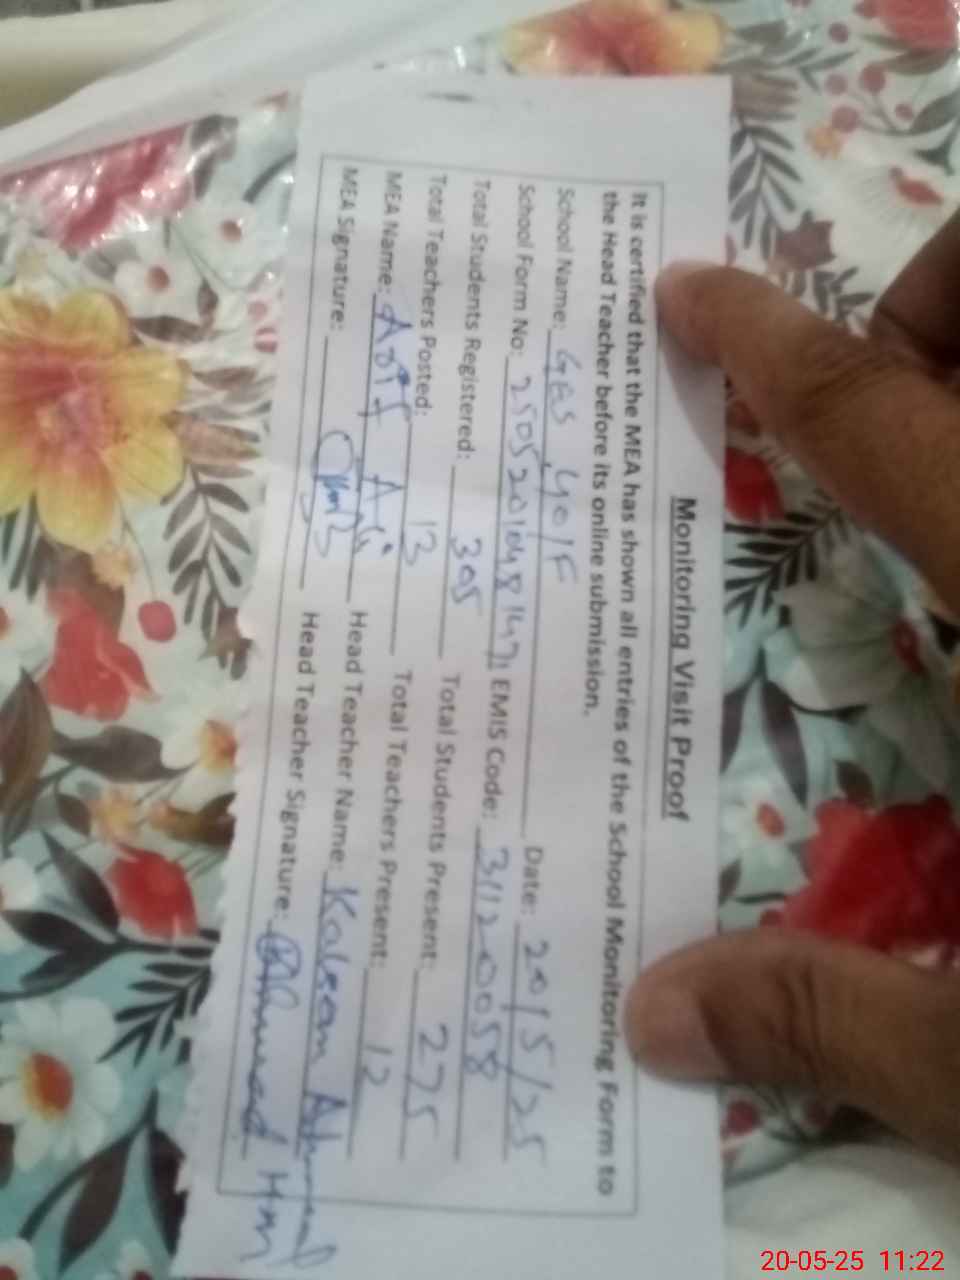 Monitoring Visit Proof
It is certified that the MEA has shown all entries of the School Monitoring Form to
the Head Teacher before its online submission.
School Name: GES, 40/F Date: 20/5/25
School Form No: EMIS Code: 31120058
Total Students Registered: 305 Total Students Present: 275
Total Teachers Posted: 13 Total Teachers Present: 12
MEA Name: Head Teacher Name: Kalsom Ahmad
MEA Signature: Head Teacher Signature: HM
20-05-25 11:22